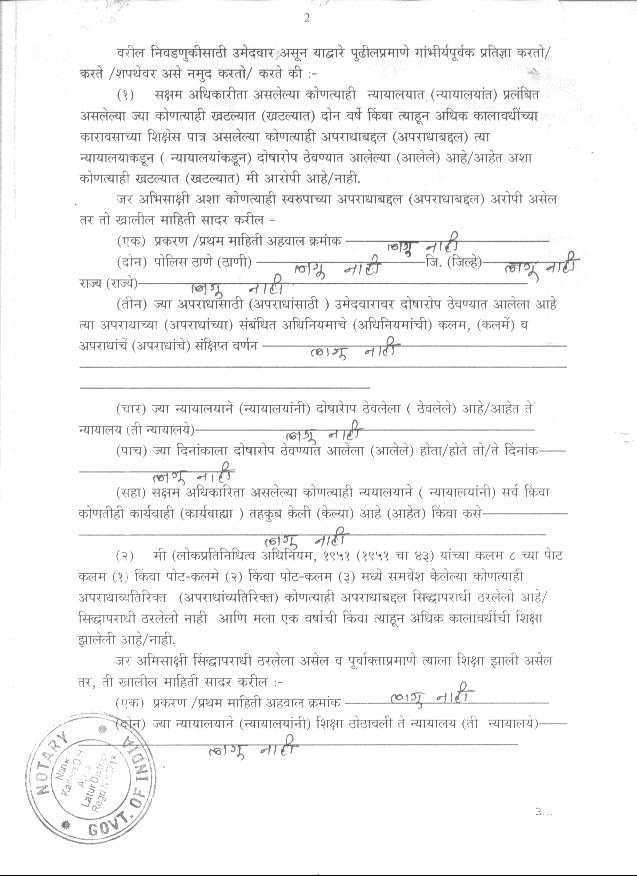 2
वरील निवडणुकीसाठी उमेदवार असून याद्वारे पुढीलप्रमाणे गांभीर्यपूर्वक प्रतिज्ञा करतो/
करते /शपथेवर असे नमुद करतो/ करते की :-
(१) सक्षम अधिकारीता असलेल्या कोणत्याही न्यायालयात (न्यायालयांत) प्रलंबित
असलेल्या ज्या कोणत्याही खटल्यात (खटल्यात) दोन वर्षे किंवा त्याहून अधिक कालावधींच्या
कारावसाच्या शिक्षेस पात्र असलेल्या कोणत्याही अपराधाबद्दल (अपराधाबद्दल) त्या
न्यायालयाकडून ( न्यायालयांकडून) दोषारोप ठेवण्यात आलेल्या (आलेले) आहे/आहेत अशा
कोणत्याही खटल्यात (खटल्यात) मी आरोपी आहे/नाही.
जर अभिसाक्षी अशा कोणत्याही स्वरुपाच्या अपराधाबद्दल (अपराधाबद्दल) अरोपी असेल
तर तो खालील माहिती सादर करील -
(एक) प्रकरण /प्रथम माहिती अहवाल क्रमांक लागू नाही
(दोन) पोलिस ठाणे (ठाणी) लागू नाही जि. (जिल्हे) लागू नाही
राज्य (राज्ये) लागू नाही
(तीन) ज्या अपराधांसाठी (अपराधांसाठी ) उमेदवारावर दोषारोप ठेवण्यात आलेला आहे
त्या अपराधाच्या (अपराधांच्या) संबंधित अधिनियमाचे (अधिनियमांची) कलम, (कलमें) व
अपराधांचें (अपराधांचे) संक्षिप्त वर्णन लागू नाही
(चार) ज्या न्यायालयाने (न्यायालयांनी) दोषारोप ठेवलेला ( ठेवलेले) आहे/आहेत ते
न्यायालय (ती न्यायालये) लागू नाही
(पाच) ज्या दिनांकाला दोषारोप ठेवण्यात आलेला (आलेले) होता/होते तो/ते दिंनांक
लागू नाही
(सहा) सक्षम अधिकारिता असलेल्या कोणत्याही न्ययालयाने ( न्यायालयांनी) सर्व किंवा
कोणतीही कार्यवाही (कार्यवाह्या ) तहकुब केली (केल्या) आहे (आहेत) किंवा कसे
लागू नाही
(२) मी (लोकप्रतिनिधित्व अधिनियम, १९५१ (१९५१ चा ४३) यांच्या कलम ८ च्या पोट
कलम (१) किंवा पोट-कलमे (२) किंवा पोट-कलम (३) मध्ये समवेश केलेल्या कोणत्याही
अपराधाव्यतिरिक्त (अपराधांव्यतिरिक्त) कोणत्याही अपराधाबद्दल सिद्धापराधी ठरलेलो आहे/
सिद्धापराधी ठरलेलो नाही आणि मला एक वर्षाची किंवा त्याहून अधिक कालावधीची शिक्षा
झालेली आहे/नाही.
जर अमिसाक्षी सिंद्धापराधी ठरलेला असेल व पूर्वाक्ताप्रमाणे त्याला शिक्षा झाली असेल
तर, ती खालील माहिती सादर करील :-
(एक) प्रकरण /प्रथम माहिती अहवाल क्रमांक लागू नाही
(दोन) ज्या न्यायालयाने (न्यायालयांनी) शिक्षा ठोठावली ते न्यायालय (ती न्यायालये)
लागू नाही
NOTARY
GOVT. OF INDIA
Latur District
3...